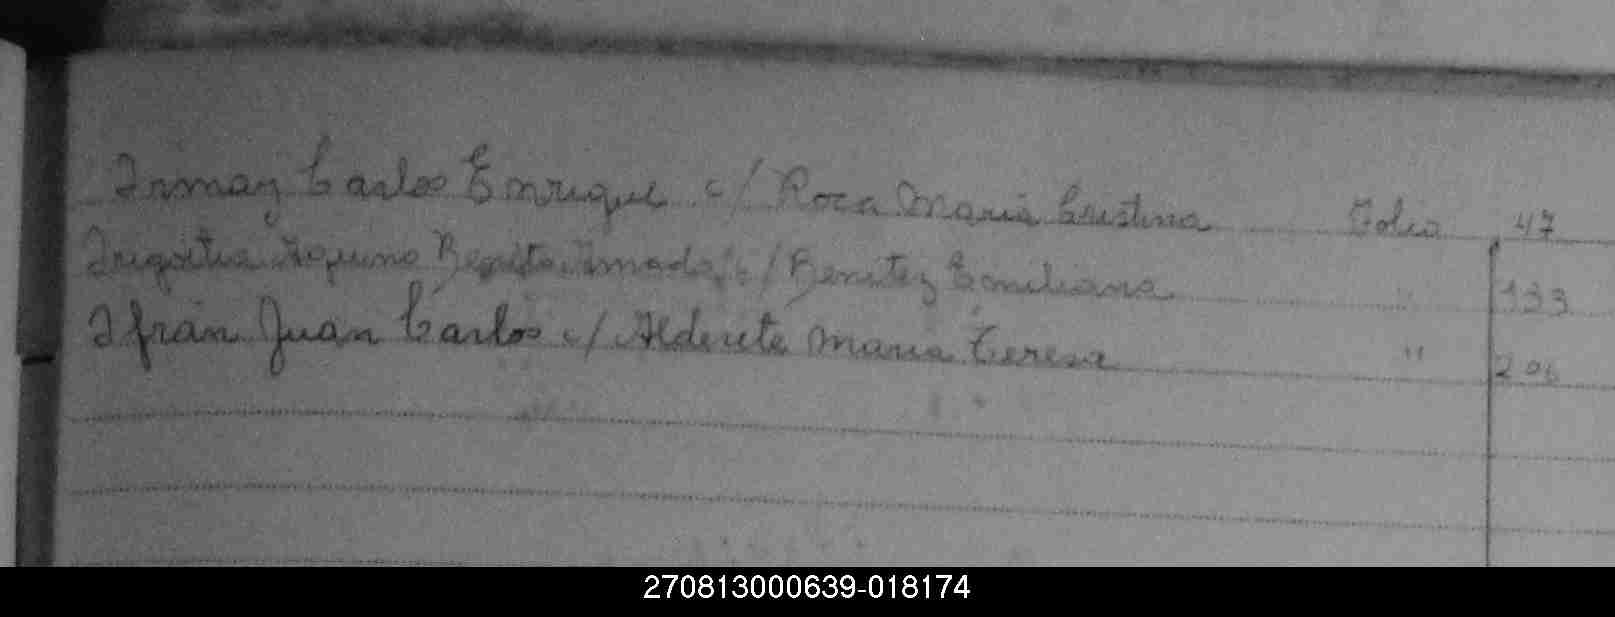 Irmay Carlos Enrique c/ Roca Maria Cristina Folio 47
Irigoitia Aquino Benito Amado c/ Benitez Emiliana " 133
Ifrán Juan Carlos c/ Alderete Maria Teresa " 206
270813000639-018174